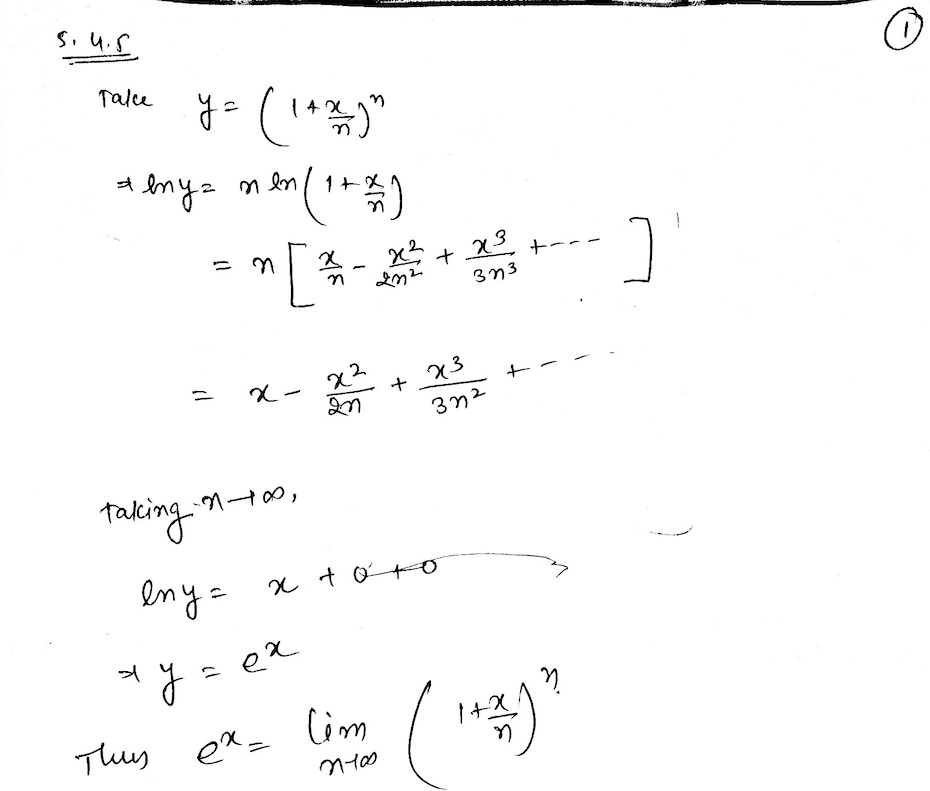 ①
5.4.5
Take y = (1 + x/n)^n
⇒ ln y = n ln(1 + x/n)
= n [ x/n - x²/2n² + x³/3n³ + --- ]
= x - x²/2n + x³/3n² + ---
taking n → ∞,
ln y = x + 0 + 0
⇒ y = e^x
Thus e^x = lim n→∞ (1 + x/n)^n